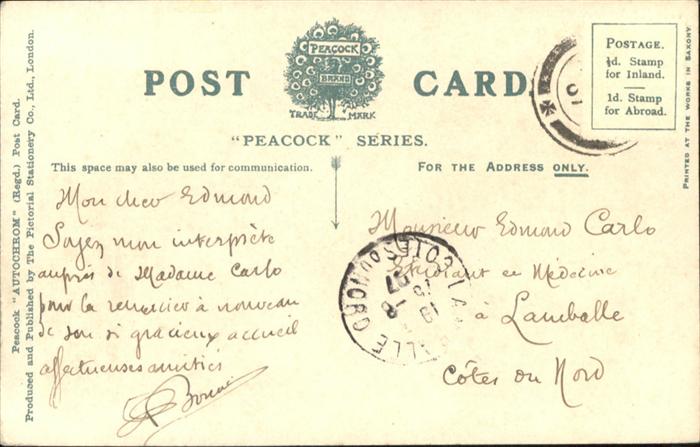 Peacock "AUTOCHROM" (Regd.) Post Card.
Produced and Published by The Pictorial Stationery Co., Ltd., London.
POST CARD
PEACOCK
BRAND
TRADE MARK
"PEACOCK" SERIES.
POSTAGE.
½d. Stamp
for Inland.
1d. Stamp
for Abroad.
PRINTED AT THE WORKS IN SAXONY
This space may also be used for communication.
FOR THE ADDRESS ONLY.
Mon cher Edmond
Soyez mon interprète
auprès de Madame Carlo
pour la remercier à nouveau
de son si gracieux accueil
affectueuses amitiés
Monsieur Edmond Carlo
Etudiant en Médecine
à Lamballe
Côtes du Nord
COTES DU NORD